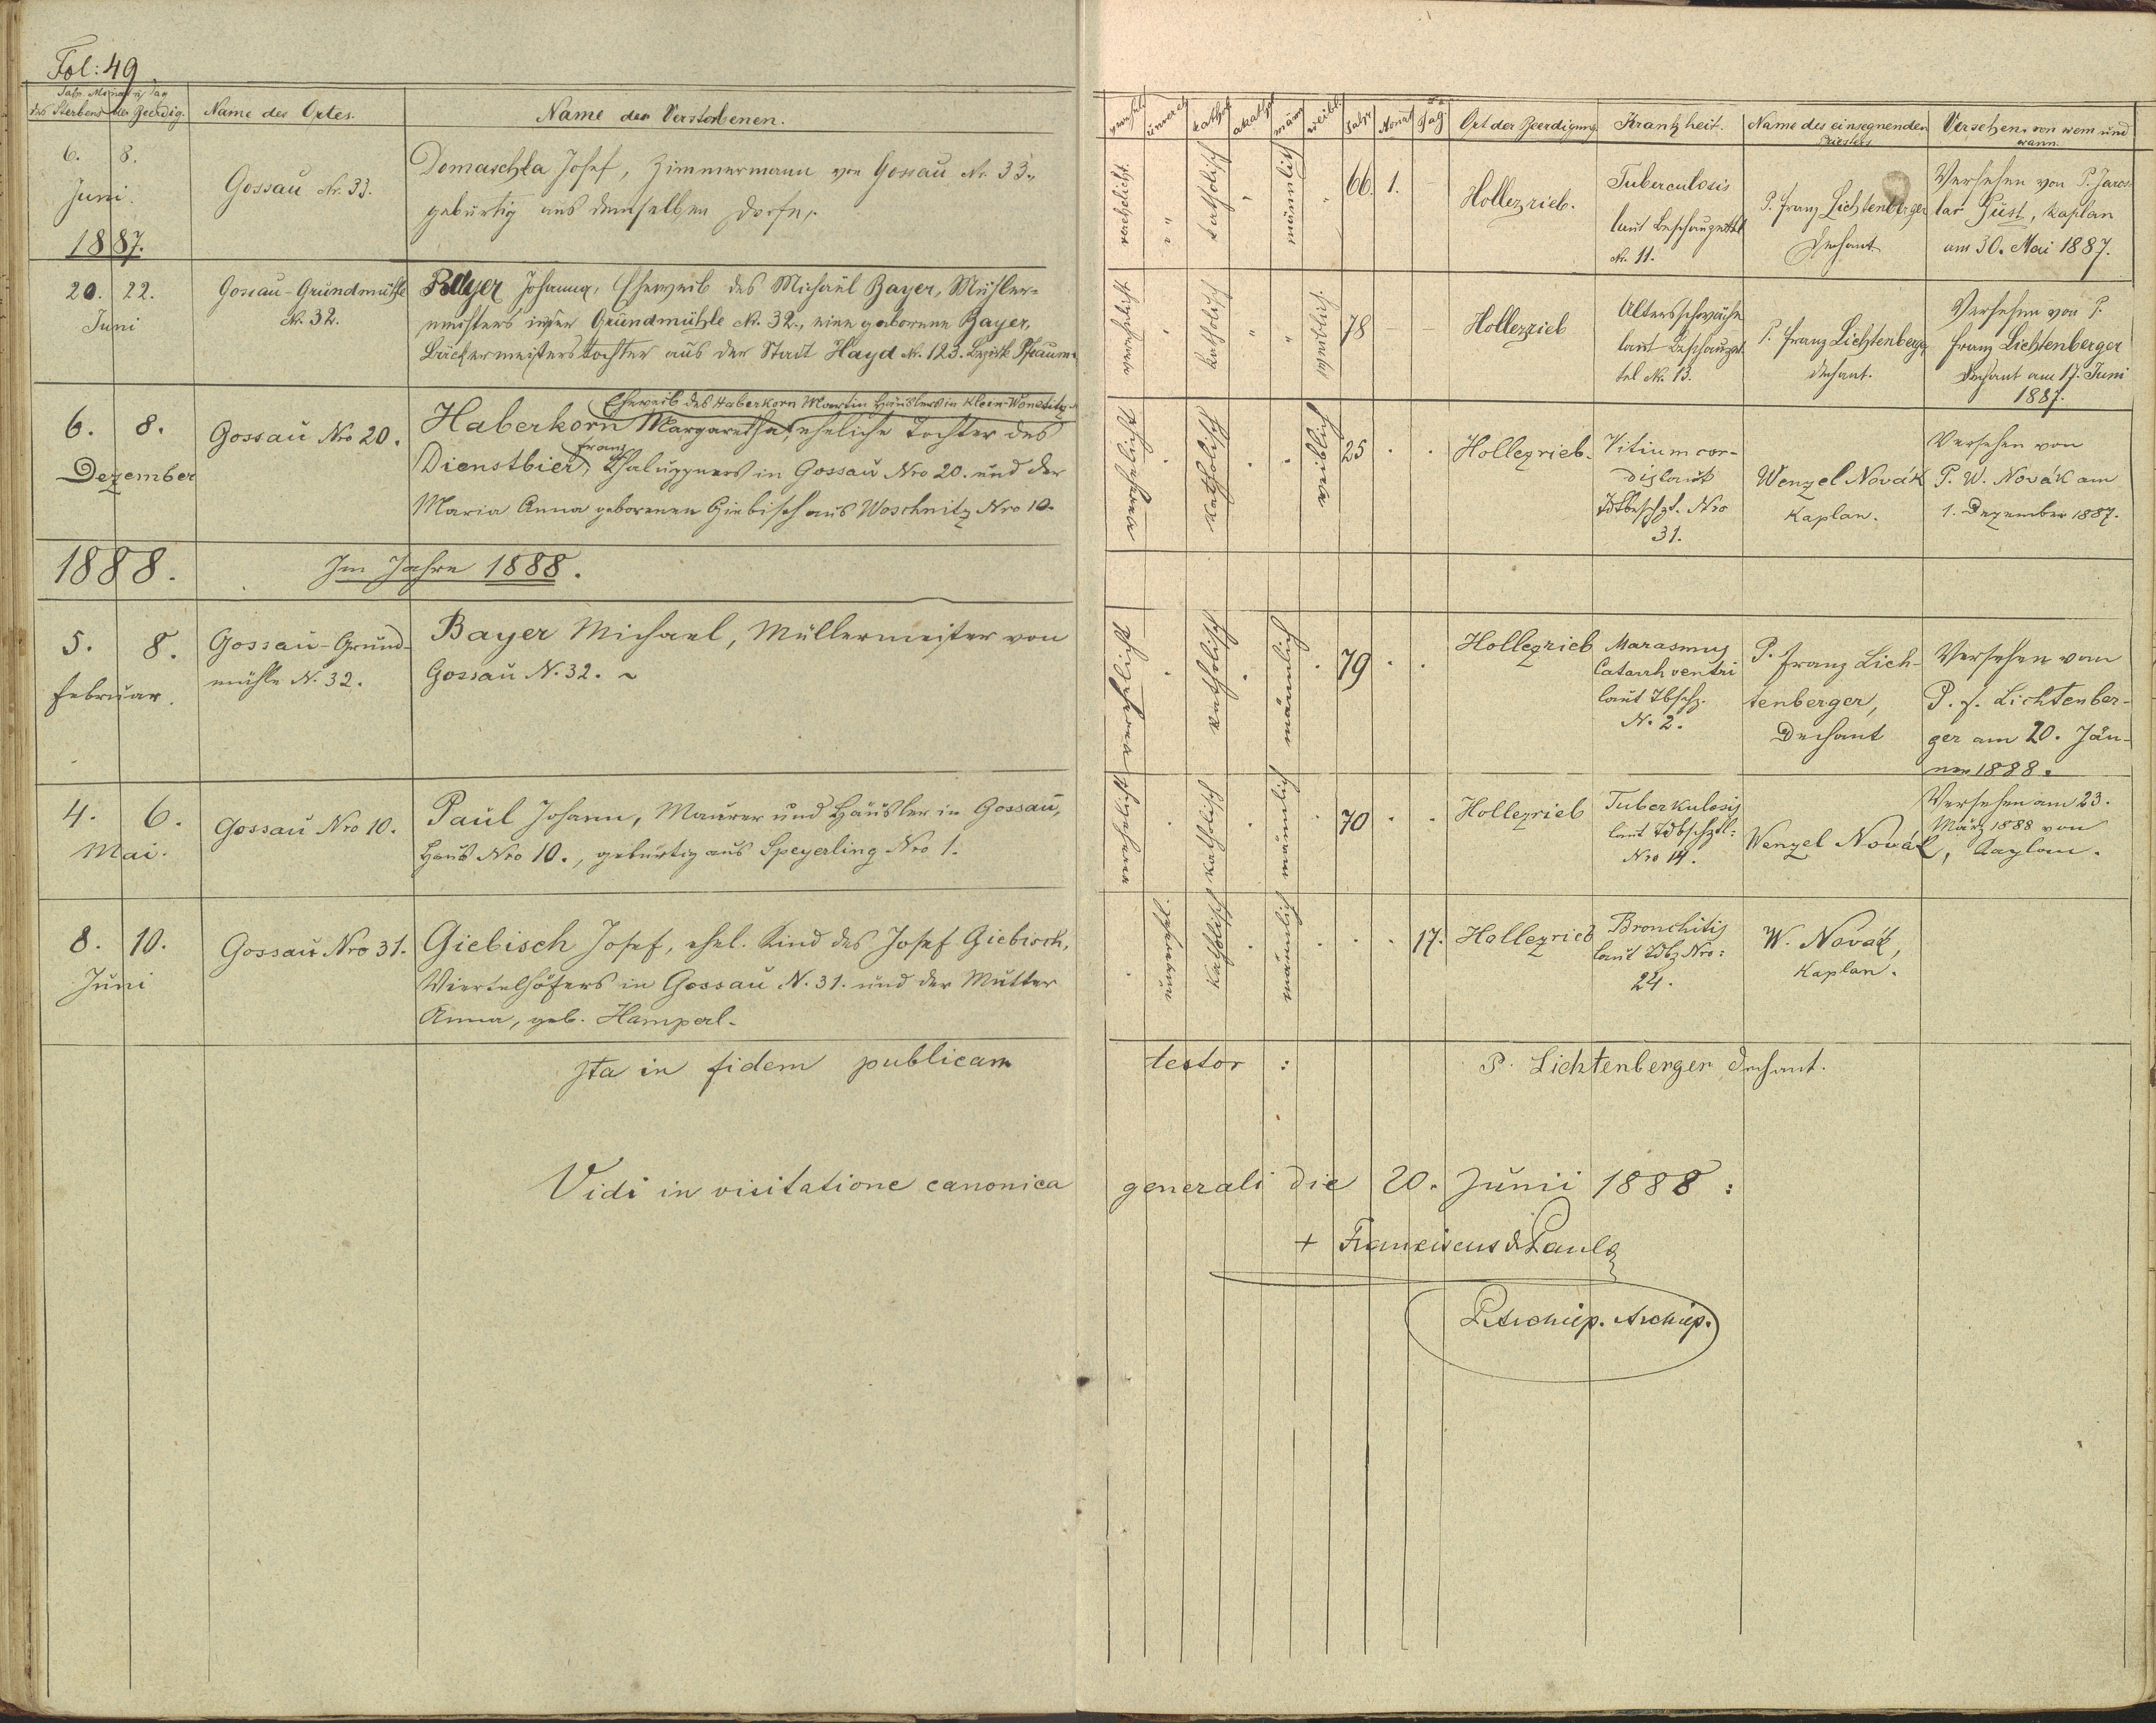 Fol: 49.
Jahr, Monat u. Tag
des Sterbens der Beerdig.
Name des Ortes.
Name des Verstorbenen.
verehel.
unvereh.
kathol.
akathol.
männ.
weibl.
Jahr
Monat
Tag
Ort der Beerdigung
Krankheit.
Name des einsegnenden
Priesters
Versehen, von wem und
wann.
6. 8.
Juni.
1887.
Gossau Nr. 33.
Domaschka Josef, Zimmermann von Gossau Nr. 33.,
gebürtig aus demselben Dorfe.
verehelicht.
katholisch
männlich
66. 1. –
Hollezrieb.
Tuberculosis
laut Beschauzettl
Nr. 11.
P. Franz Lichtenberger
Dechant
Versehen von P. Jaros-
lav Just, Kaplan
am 30. Mai 1887.
20. 22.
Juni
Gossau-Grundmühle
Nr. 32.
Bayer Johanna, Eheweib des Michael Bayer, Müller-
meisters in der Grundmühle Nr. 32., eine geborene Bayer,
Bäckermeisterstochter aus der Stadt Hayd Nr. 123. Bezirk Pfraum-
verehelicht
katholisch
weiblich.
78 – –
Hollezrieb
Altersschwäche
laut Beschauzet-
tel Nr. 13.
P. Franz Lichtenberger
Dechant.
Versehen von P.
Franz Lichtenberger
Dechant am 17. Juni
1887.
6. 8.
Dezember
Gossau Nro 20.
Eheweib des Haberkorn Martin Häuslers in Klein-Wonetitz
Haberkorn Margaretha, eheliche Tochter des
Franz
Dienstbier, Chaluppners in Gossau Nro 20. und der
Maria Anna geborenen Giebisch aus Woschnitz Nro 10.
verehelicht
katholisch
weiblich
25 . .
Hollezrieb.
Vitium cor-
dis laut
Tdtbeschzt. Nro
31.
Wenzel Novák
Kaplan.
Versehen von
P. W. Novák am
1. Dezember 1887.
1888.
Im Jahre 1888.
5. 8.
Februar.
Gossau-Grund-
mühle N. 32.
Bayer Michael, Müllermeister von
Gossau N. 32.
verehelicht
katholisch
männlich
79 . .
Hollezrieb
Marasmus
Catarrh ventri
laut Tbschz.
N. 2.
P. Franz Lich-
tenberger,
Dechant
Versehen vom
P. F. Lichtenber-
ger am 20. Jän-
ner 1888.
4. 6.
Mai.
Gossau Nro 10.
Paul Johann, Maurer und Häusler in Gossau,
Haus Nro 10., gebürtig aus Speyerling Nro 1.
verehelicht
katholisch
männlich
70 . .
Hollezrieb
Tuberkulosis
laut Tdbschztl:
Nro 14.
Wenzel Novák, Kaplan.
Versehen am 23.
März 1888 von
8. 10.
Juni
Gossau Nro 31.
Giebisch Josef, ehel. Kind des Josef Giebisch,
Viertelhöfers in Gossau N. 31. und der Mutter
Anna, geb. Hamperl.
unverehel.
katholisch
männlich
17.
Hollezrieb
Bronchitis
laut Tdbz Nro:
24.
W. Novák,
Kaplan.
Ita in fidem publicam testor : P. Lichtenberger Dechant.
Vidi in visitatione canonica generali die 20. Junii 1888 :
+ Franciscus de Paula
Archiep.